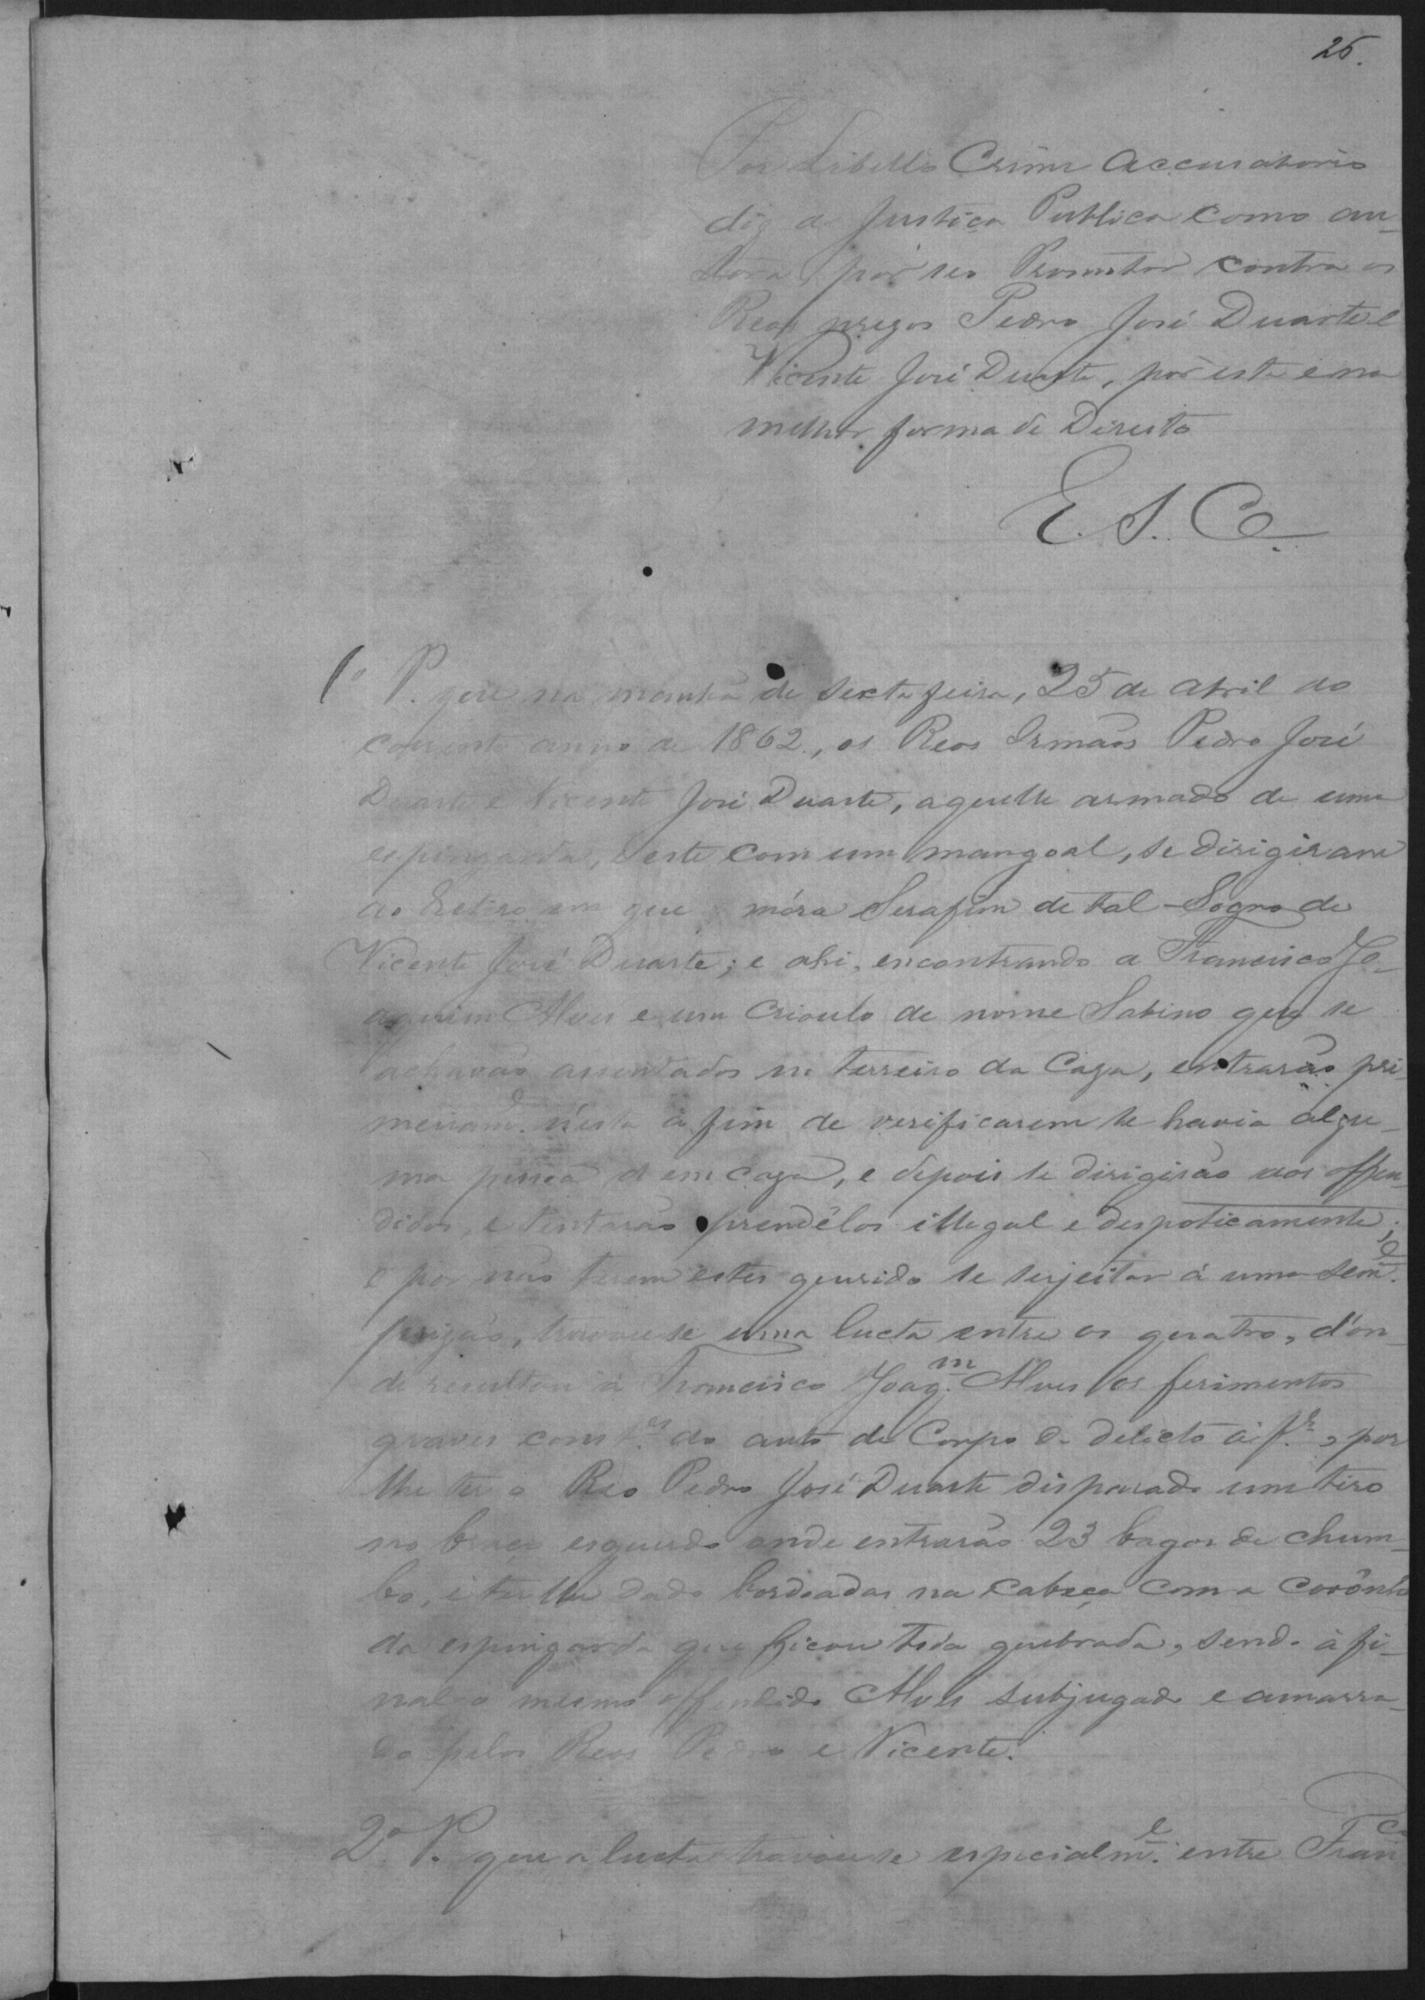 25.
Por Libello Crime Accusatorio
diz a Justiça Publica como au-
tora, por seo Promotor contra os
Reos prezos Pedro José Duarte e
Vicente José Duarte, por esta e na
melhor forma de Direito
E. S. C.
1º P. que na manhã de sexta feira, 25 de Abril do
corrente anno de 1862, os Reos Irmãos Pedro José
Duarte e Vicente José Duarte, aquelle armado de uma
espingarda, e este com um mangoal, se dirigiram
ao Retiro em que móra Serafim de tal Sogro de
Vicente José Duarte; e ahi, encontrando a Francisco Jo-
aquim Alves e um Crioulo de nome Sabino que se
achavão assentados no terreiro da Caza, entrarão pri-
meiramᵉ. n'esta á fim de verificarem se havia algu-
ma pessoa em caza, e depois se dirigirão aos offen-
didos, e tentarão prendêlos illegal e despoticamente;
e por não terem estes querido se sujeitar á uma semᵉ.
prizão, travou-se uma lucta entre os quatro, d'on-
de resultou á Francisco Joaqᵐ. Alves os ferimentos
graves constᵉˢ. do auto de Corpo de delicto á fˢ., por
lhe ter o Reo Pedro José Duarte disparado um tiro
no braço esquerdo onde entrarão 23 bagos de chum-
bo, e ter lhe dado bordoadas na cabeça com a corônha
da espingarda que ficou toda quebrada, sendo á fi-
nal o mesmo offendido Alves subjugado e amarra-
do pelos Reos Pedro e Vicente.
2º P. que a lucta travou-se especialmᵉ. entre Franᶜ